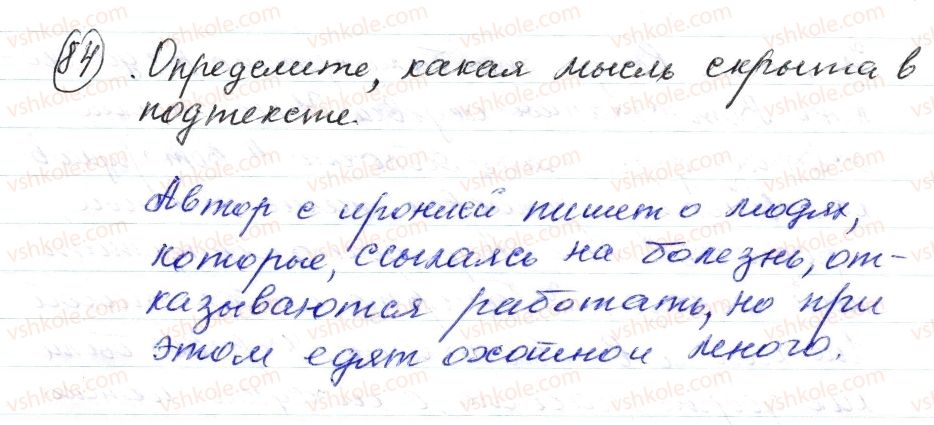 84. Определите, какая мысль скрыта в
подтексте.
Автор с иронией пишет о людях,
которые, ссылаясь на болезнь, от-
казываются работать, но при
этом едят охотно и много.